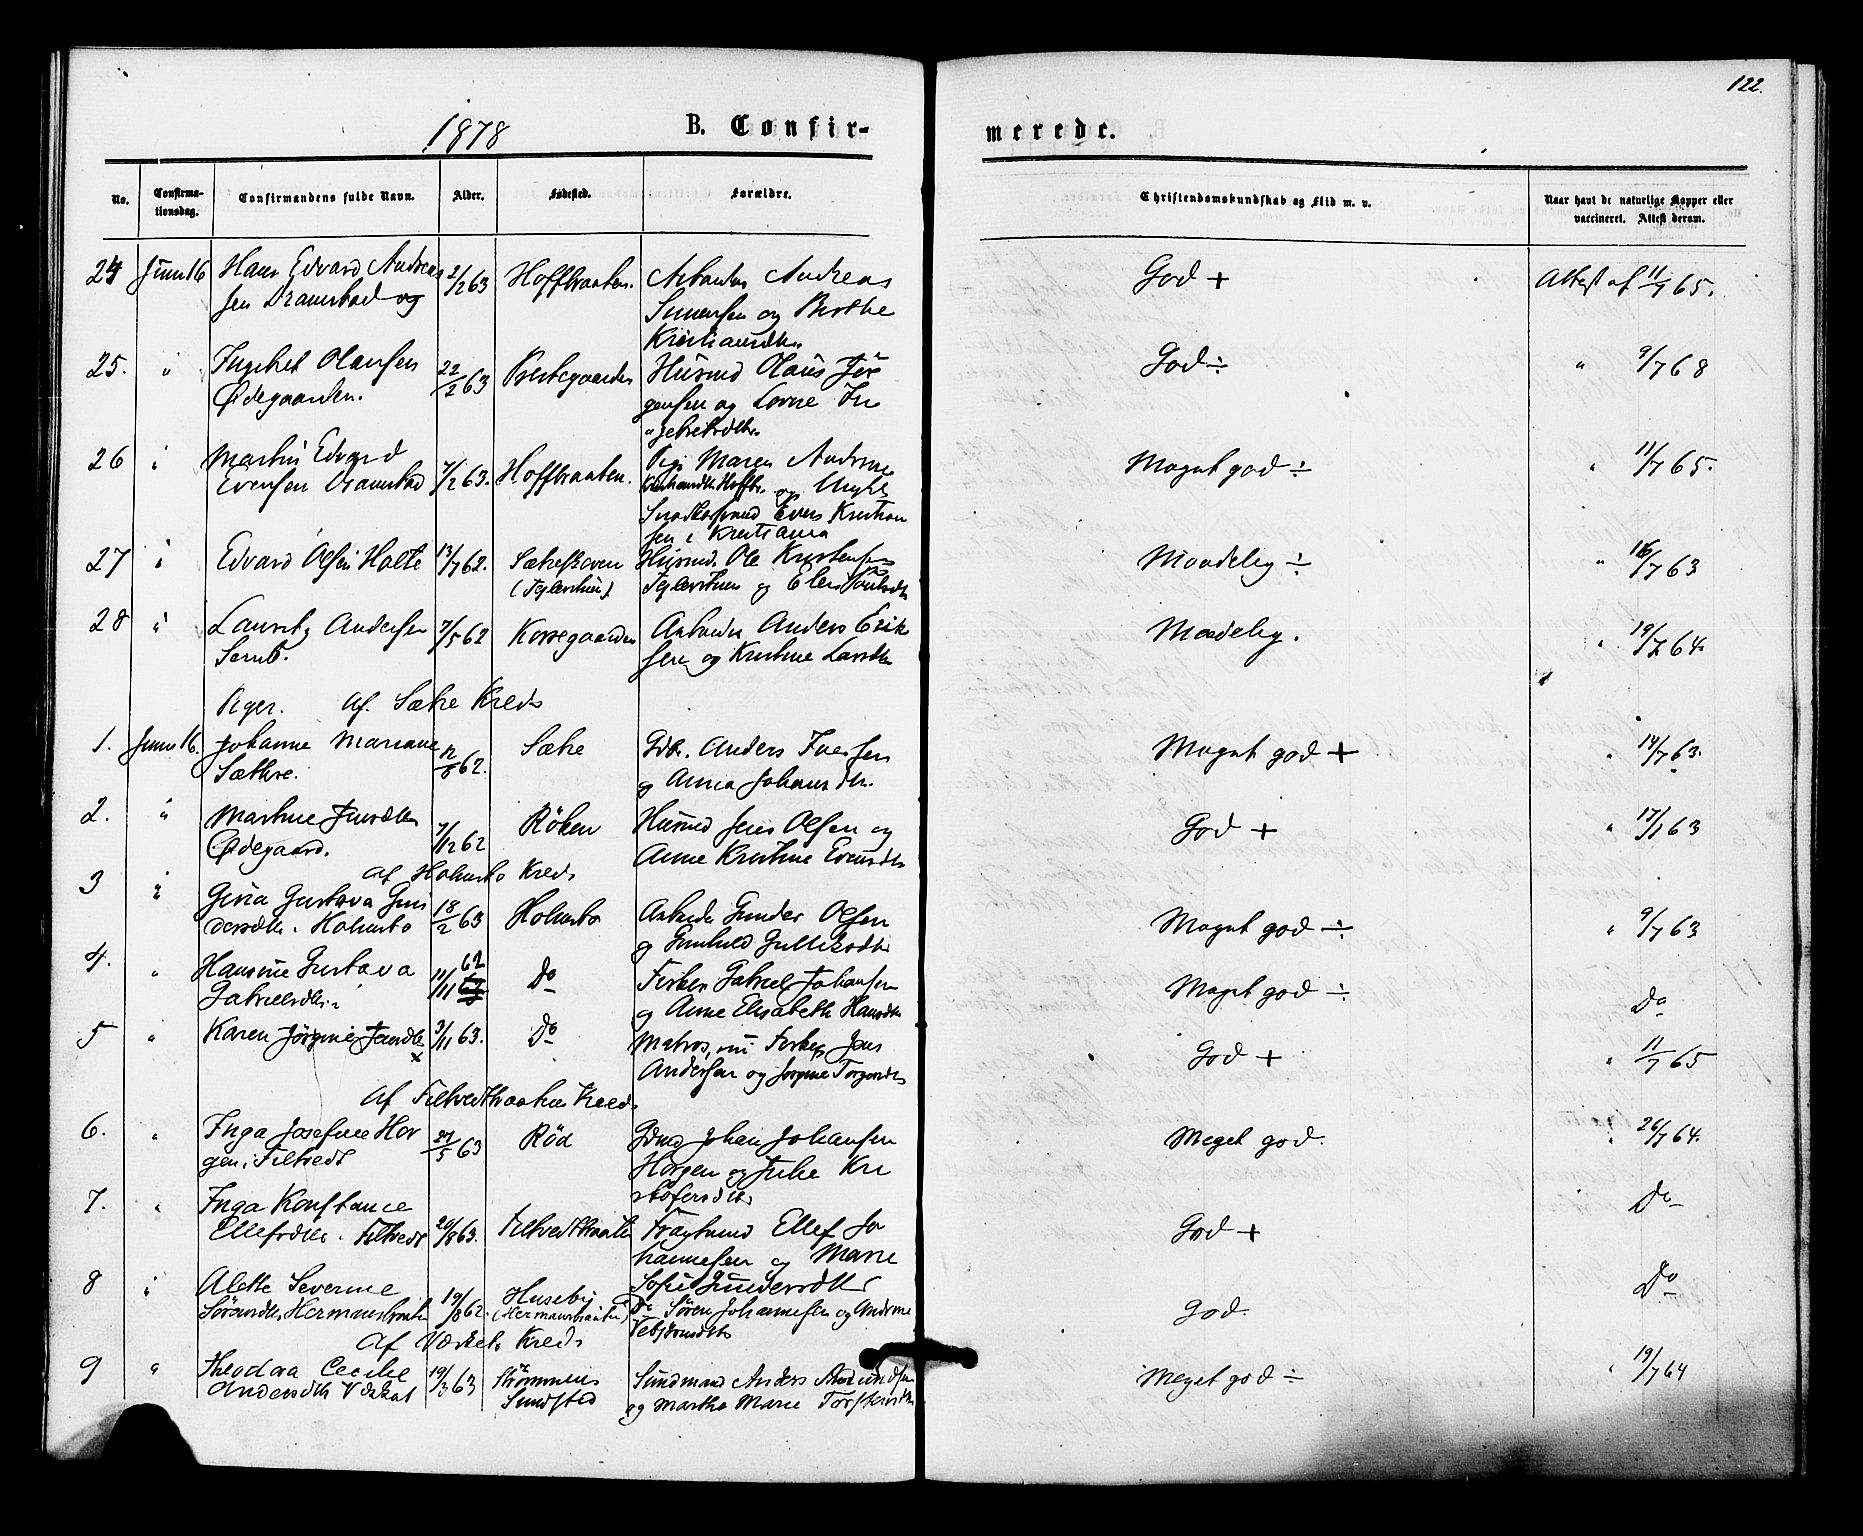 122.
1878 B. Confir-
merede.
No. Confirma-tionsdag. Confirmandens fulde Navn. Alder. Fødested. Forældre. Christendomskundskab og Flid m. v. Naar havt de naturlige Kopper eller vaccineret. Attest derom.
24 Juni 16 Hans Edvard Andreas 2/2 63 Hoffbraaten. Arbeider Andreas God + Attest af 11/7 65.
sen Dramstad og Simensen og Berthe
25. " Olausen 22/2 63 Prestegaarden Husmd Olaus Jör God ÷ " 9/7 68
Ødegaarden. gensen og Lovise In
gebretsdtr
26 " Martin Edvard 7/2 63. Hoffbraaten. Pige Maren Andrine Meget god ÷ " 11/7 65.
Evensen Dramstad og Ungk.
Even Kristian
sen i Kristiania
27 " Edvard Olsen Holte 13/7 62. Sætreskoven Husmd. Ole Kristensen Maadelig ÷ " 16/7 63
(Teglverket) og Elen
28 " Lauritz Andersen 7/5 62 Korsegaarden Arbeider Anders Erik Maadelig. " 19/7 64.
sen og Kristine Larsdtr
Piger. af Sætre Kreds
1. Juni 16. Johanne Mariane 12/8 62. Sætre Gdbr. Anders Iversen Meget god + " 14/7 63.
Sæthre. og Anna Johansdtr.
2. " Martine Jensdtr 7/12 62 Röken Husmd Jens Olsen og God + " 17/1 63
Ødegaard. Anne Kristine Evensdtr
af Holmsbo Kreds
3 " Gina Gustava Gun 18/2 63 Holmsbo Arbeider Gunder Olsen Meget god ÷ " 9/7 63
dersdtr. Holmsbo og Gunhild Gulliksdtr
4. " Hansine Gustava 11/11 62 Do Fisker Gabriel Johansen Meget god ÷ Do
Gabrielsdtr. og Anne Elisabeth Hansdtr
5 " Karen Jörgine Jensdtr 3/11 63. Do Matros, nu Fisker Jens God + " 11/7 65
x Andersen og Jorgine Torgersdtr
af Filtvedtbraaten Kreds
6. " Inga Josefine Hor 27/5 63 Röd Gdmd Johan Johansen Meget god. " 26/7 64.
gen, Filtvedt Horgen og Julie Kri
stofersdtr
7. " Inga Konstance 20/8 63. Filtvedtbraaten Ellef Jo God + Do
Ellefsdtr. Filtvedt hannesen og Marie
Sofie Gundersdtr
8 " Alette Severine 19/8 62. Huseby Do Søren Johannesen og Andrine God. Do
Sørensdtr. Hermansbraaten (Hermansbraaten)
af Værkets Kreds
9 " Theodora Cecilie 19/3 63 Strömmens Sundmand Anders Meget god ÷ " 19/7 64
Andersdtr Sundsted og Martha Marie